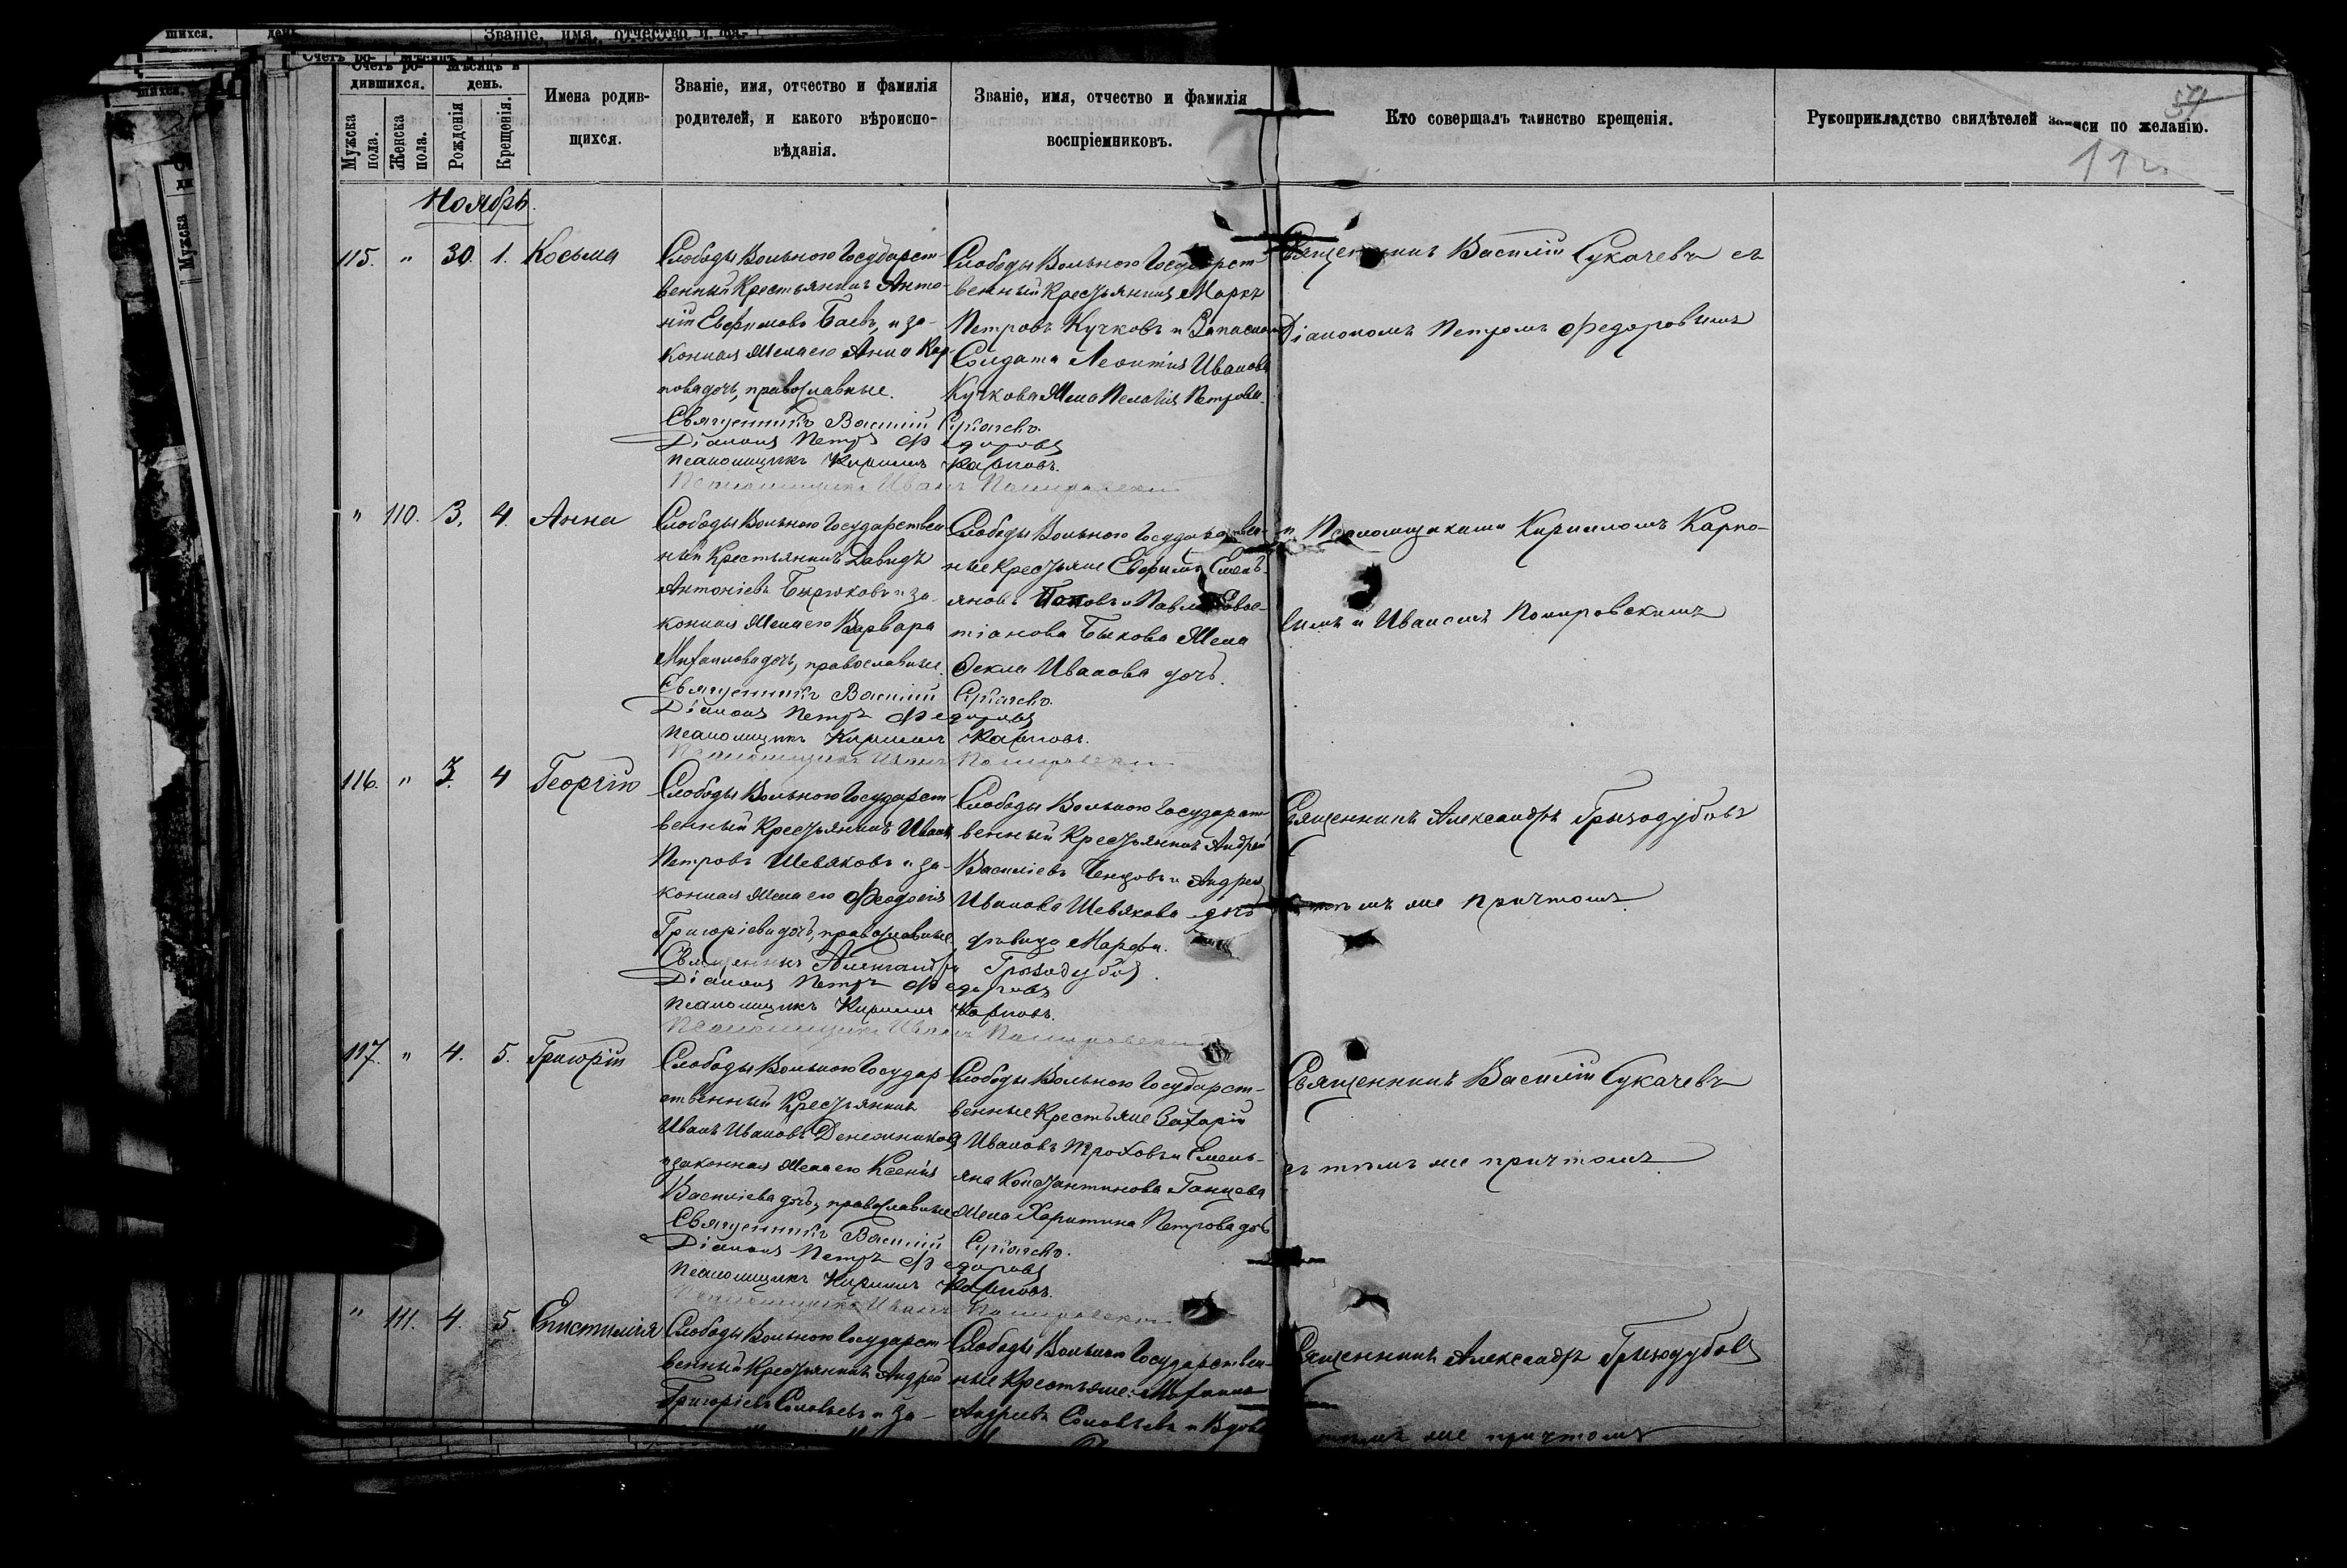 шихся.
день
Званіе, имя, отчество и фа-
Счетъ ро-
Счетъ ро-
дившихся.
Мужска пола.
Женска пола.
Мѣсяцъ и
день.
Рожденія
Крещенія.
Имена родив-
шихся.
Званіе, имя, отчество и фамилія
родителей, и какого вѣроиспо-
вѣданія.
Званіе, имя, отчество и фамилія
воспріемниковъ.
Кто совершалъ таинство крещенія.
Рукоприкладство свидѣтелей записи по желанію.
Мужска
Ноябрь.
115. " 30. 1. Косьма
Слободы Вольного Государст-
венный Крестьянинъ Анто-
ній Евфимовъ Баевъ, и за-
конная жена его Анна Кар-
повa дочь, православные.
Священникъ Василій Сукачевъ.
Діаконъ Петръ Федоровъ
Псаломщикъ Кириллъ Карповъ.
Псаломщикъ Иванъ
Слободы Вольного Государст-
венный Крестьянинъ Маркъ
Петровъ Кучковъ и Запаснаго
Солдата Леонтія Иванова
Кучкова жена Пелагія Петрова.
Священникъ Василій Сукачевъ съ
Діакономъ Петромъ Федоровымъ
" 110. 3. 4. Анна
Слободы Вольного Государствен-
ный Крестьянинъ Давидъ
Антоніевъ Бирюковъ и за-
конная жена его Варвара
Михаилова дочь, православные.
Священникъ Василій Сукачевъ.
Діаконъ Петръ Федоровъ
Псаломщикъ Кириллъ Карповъ.
Псаломщикъ Иванъ
Слободы Вольного Государствен-
ные Крестьяне Евфимъ Емель-
яновъ и Павла Савос-
тіанова Быкова жена
Фекла Иванова дочь.
и Псаломщиками Кирилломъ Карпо-
вымъ и Иваномъ
116. " 3. 4 Георгій
Слободы Вольного Государст-
венный Крестьянинъ Иванъ
Петровъ Шевяковъ и за-
конная жена его Феодосія
Григоріева дочь, православные
Священникъ Александръ Грызодубовъ.
Діаконъ Петръ Федоровъ
Псаломщикъ Кириллъ Карповъ.
Псаломщикъ Иванъ
Слободы Вольного Государст-
венный Крестьянинъ Андрей
Василіевъ Ченцовъ и Андрея
Иванова Шевякова дочь
дѣвица Марфа.
Священникъ Александръ Грызодубовъ
съ тѣмъ же причтомъ.
117. " 4. 5. Григорій
Слободы Вольного Государ
ственный Крестьянинъ
Иванъ Ивановъ Денежниковъ
и законная жена его Ксенія
Василіева дочь, православные
Священникъ Василій Сукачевъ.
Діаконъ Петръ Федоровъ
Псаломщикъ Кириллъ Карповъ.
Псаломщикъ Иванъ
Слободы Вольного Государст-
венные Крестьяне Захарій
Ивановъ Троховъ и Емель-
яна Константинова Ганцева
жена Харитина Петрова дочь
Священникъ Василій Сукачевъ
съ тѣмъ же причтомъ.
" 111. 4. 5 Епистимія
Слободы Вольного Государст-
венный Крестьянинъ Андрей
Григоріевъ Соловьевъ и за-
Слободы Вольного Государствен-
ные Крестьяне: Михаилъ
Андреевъ Соловьевъ и Вдова
Священникъ Александръ Грызодубовъ
съ тѣмъ же причтомъ